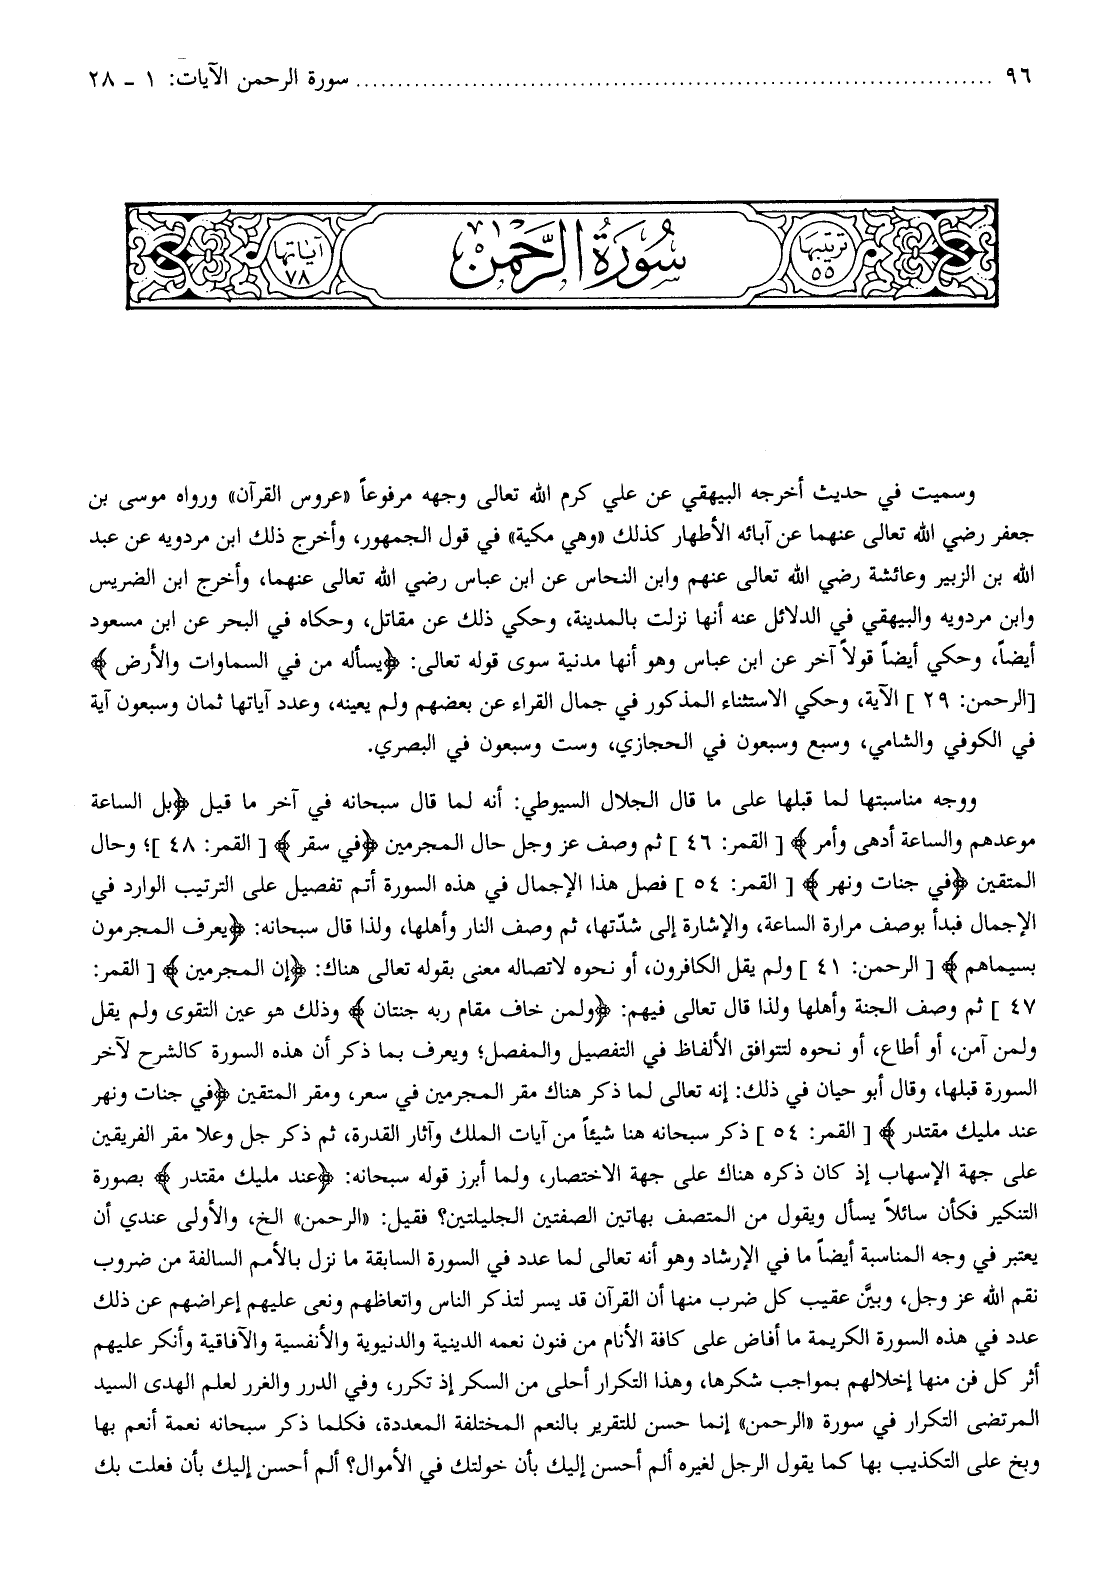 ٩٦ ........ سورة الرحمن الآيات: ١ - ٢٨
ترتيبها ٥٥ سُورَةُ الرَّحْمٰن آياتها ٧٨
وسميت في حديث أخرجه البيهقي عن علي كرم الله تعالى وجهه مرفوعاً «عروس القرآن» ورواه موسى بن
جعفر رضي الله تعالى عنهما عن آبائه الأطهار كذلك «وهي مكية» في قول الجمهور، وأخرج ذلك ابن مردويه عن عبد
الله بن الزبير وعائشة رضي الله تعالى عنهم وابن النحاس عن ابن عباس رضي الله تعالى عنهما، وأخرج ابن الضريس
وابن مردويه والبيهقي في الدلائل عنه أنها نزلت بالمدينة، وحكي ذلك عن مقاتل، وحكاه في البحر عن ابن مسعود
أيضاً، وحكي أيضاً قولاً آخر عن ابن عباس وهو أنها مدنية سوى قوله تعالى: ﴿يسأله من في السماوات والأرض ﴾
[الرحمن: ٢٩ ] الآية، وحكي الاستثناء المذكور في جمال القراء عن بعضهم ولم يعينه، وعدد آياتها ثمان وسبعون آية
في الكوفي والشامي، وسبع وسبعون في الحجازي، وست وسبعون في البصري.
ووجه مناسبتها لما قبلها على ما قال الجلال السيوطي: أنه لما قال سبحانه في آخر ما قبل ﴿بل الساعة
موعدهم والساعة أدهى وأمر ﴾ [ القمر: ٤٦ ] ثم وصف عز وجل حال المجرمين ﴿في سقر ﴾ [ القمر: ٤٨ ]؛ وحال
المتقين ﴿في جنات ونهر ﴾ [ القمر: ٥٤ ] فصل هذا الإجمال في هذه السورة أتم تفصيل على الترتيب الوارد في
الإجمال فبدأ بوصف مرارة الساعة، والإشارة إلى شدّتها، ثم وصف النار وأهلها، ولذا قال سبحانه: ﴿يعرف المجرمون
بسيماهم ﴾ [ الرحمن: ٤١ ] ولم يقل الكافرون، أو نحوه لاتصاله معنى بقوله تعالى هناك: ﴿إن المجرمين ﴾ [ القمر:
٤٧ ] ثم وصف الجنة وأهلها ولذا قال تعالى فيهم: ﴿ولمن خاف مقام ربه جنتان ﴾ وذلك هو عين التقوى ولم يقل
ولمن آمن، أو أطاع، أو نحوه لتتوافق الألفاظ في التفصيل والمفصل؛ ويعرف بما ذكر أن هذه السورة كالشرح لآخر
السورة قبلها، وقال أبو حيان في ذلك: إنه تعالى لما ذكر هناك مقر المجرمين في سعر، ومقر المتقين ﴿في جنات ونهر
عند مليك مقتدر ﴾ [ القمر: ٥٤ ] ذكر سبحانه هنا شيئاً من آيات الملك وآثار القدرة، ثم ذكر جل وعلا مقر الفريقين
على جهة الإسهاب إذ كان ذكره هناك على جهة الاختصار، ولما أبرز قوله سبحانه: ﴿عند مليك مقتدر ﴾ بصورة
التنكير فكأن سائلاً يسأل ويقول من المتصف بهاتين الصفتين الجليلتين؟ فقيل: «الرحمن» الخ، والأولى عندي أن
يعتبر في وجه المناسبة أيضاً ما في الإرشاد وهو أنه تعالى لما عدد في السورة السابقة ما نزل بالأمم السالفة من ضروب
نقم الله عز وجل، وبيَّن عقيب كل ضرب منها أن القرآن قد يسر لتذكر الناس واتعاظهم ونعى عليهم إعراضهم عن ذلك
عدد في هذه السورة الكريمة ما أفاض على كافة الأنام من فنون نعمه الدينية والدنيوية والأنفسية والآفاقية وأنكر عليهم
أثر كل فن منها إخلالهم بمواجب شكرها، وهذا التكرار أحلى من السكر إذ تكرر، وفي الدرر والغرر لعلم الهدى السيد
المرتضى التكرار في سورة «الرحمن» إنما حسن للتقرير بالنعم المختلفة المعددة، فكلما ذكر سبحانه نعمة أنعم بها
وبخ على التكذيب بها كما يقول الرجل لغيره ألم أحسن إليك بأن خولتك في الأموال؟ ألم أحسن إليك بأن فعلت بك